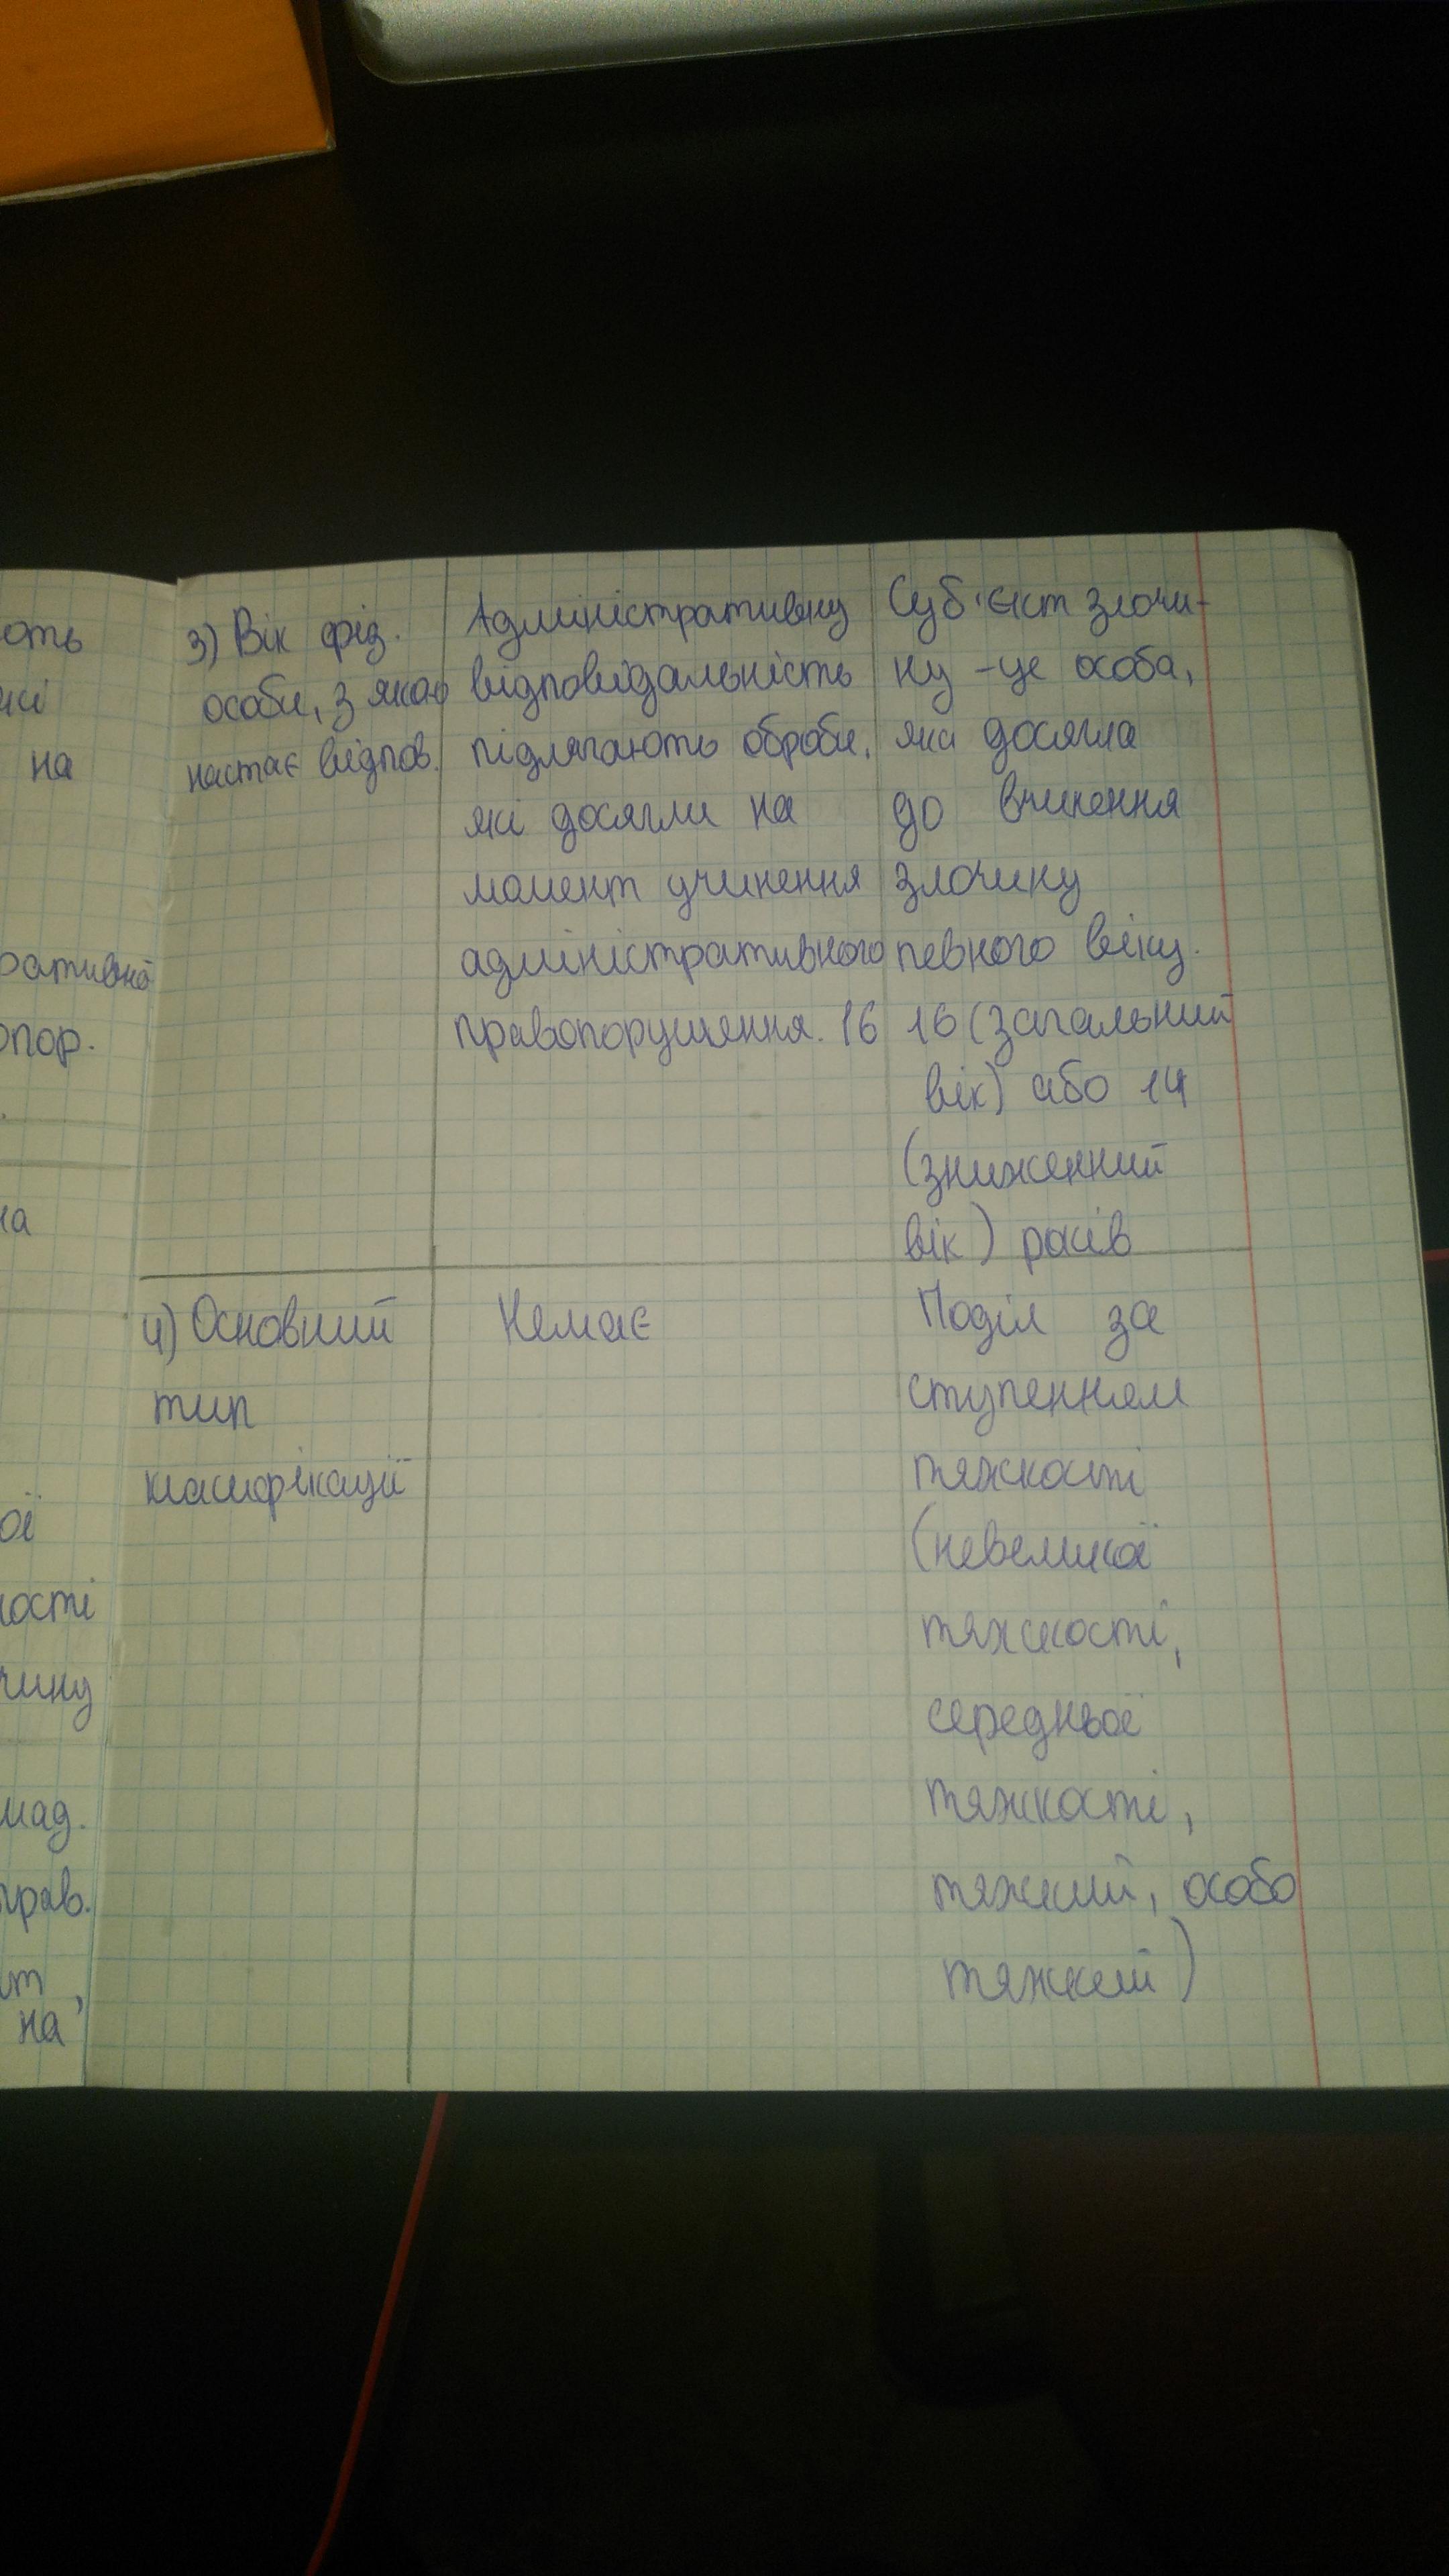 ють
на
ративна
опор.
на
ої
ності
чину
мад.
прав.
на
3) Вік фіз.
особи, з якого
настає відпов.
Адміністративну
відповідальність
підлягають оброби,
які досягли на
момент учинення
адміністративного
правопорушення. 16
Суб'єкт злочи-
ну - це особа,
яка досягла
до вчинення
злочину
певного віку.
16 (загальний
вік) або 14
(знижений
вік) років
4) Основний
тип
класифікації
Немає
Поділ за
ступенем
тяжкості
(невеликої
тяжкості,
середньої
тяжкості,
тяжкий, особо
тяжкий)